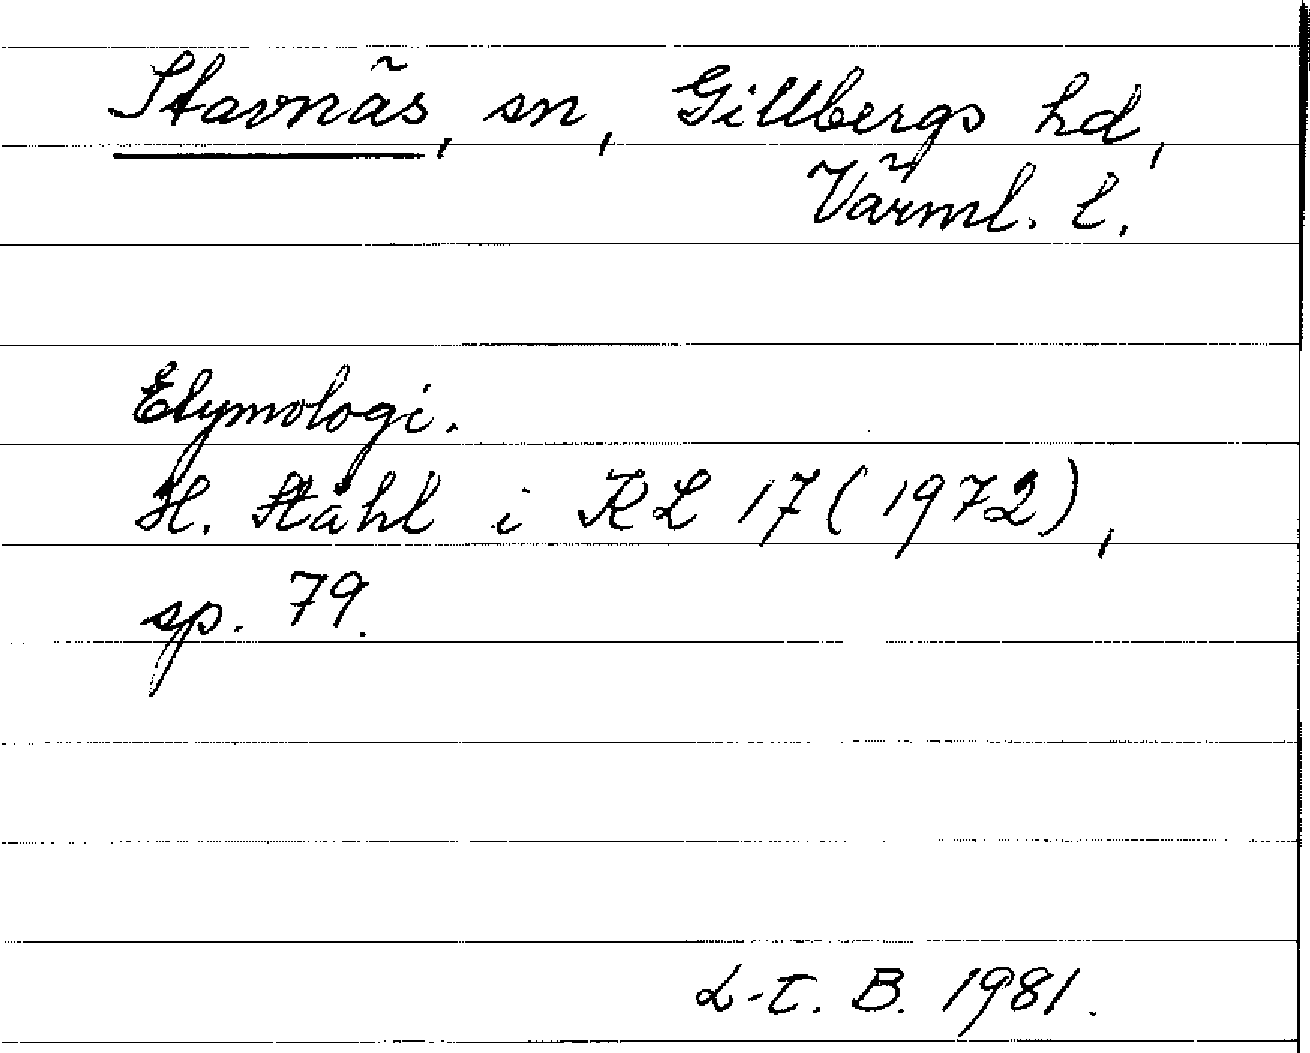 Stavnäs, sn, Gillbergs hd,
Värml. l.
Etymologi.
H. Ståhl i KL 17 (1972),
sp. 79.
L-E. B. 1981.